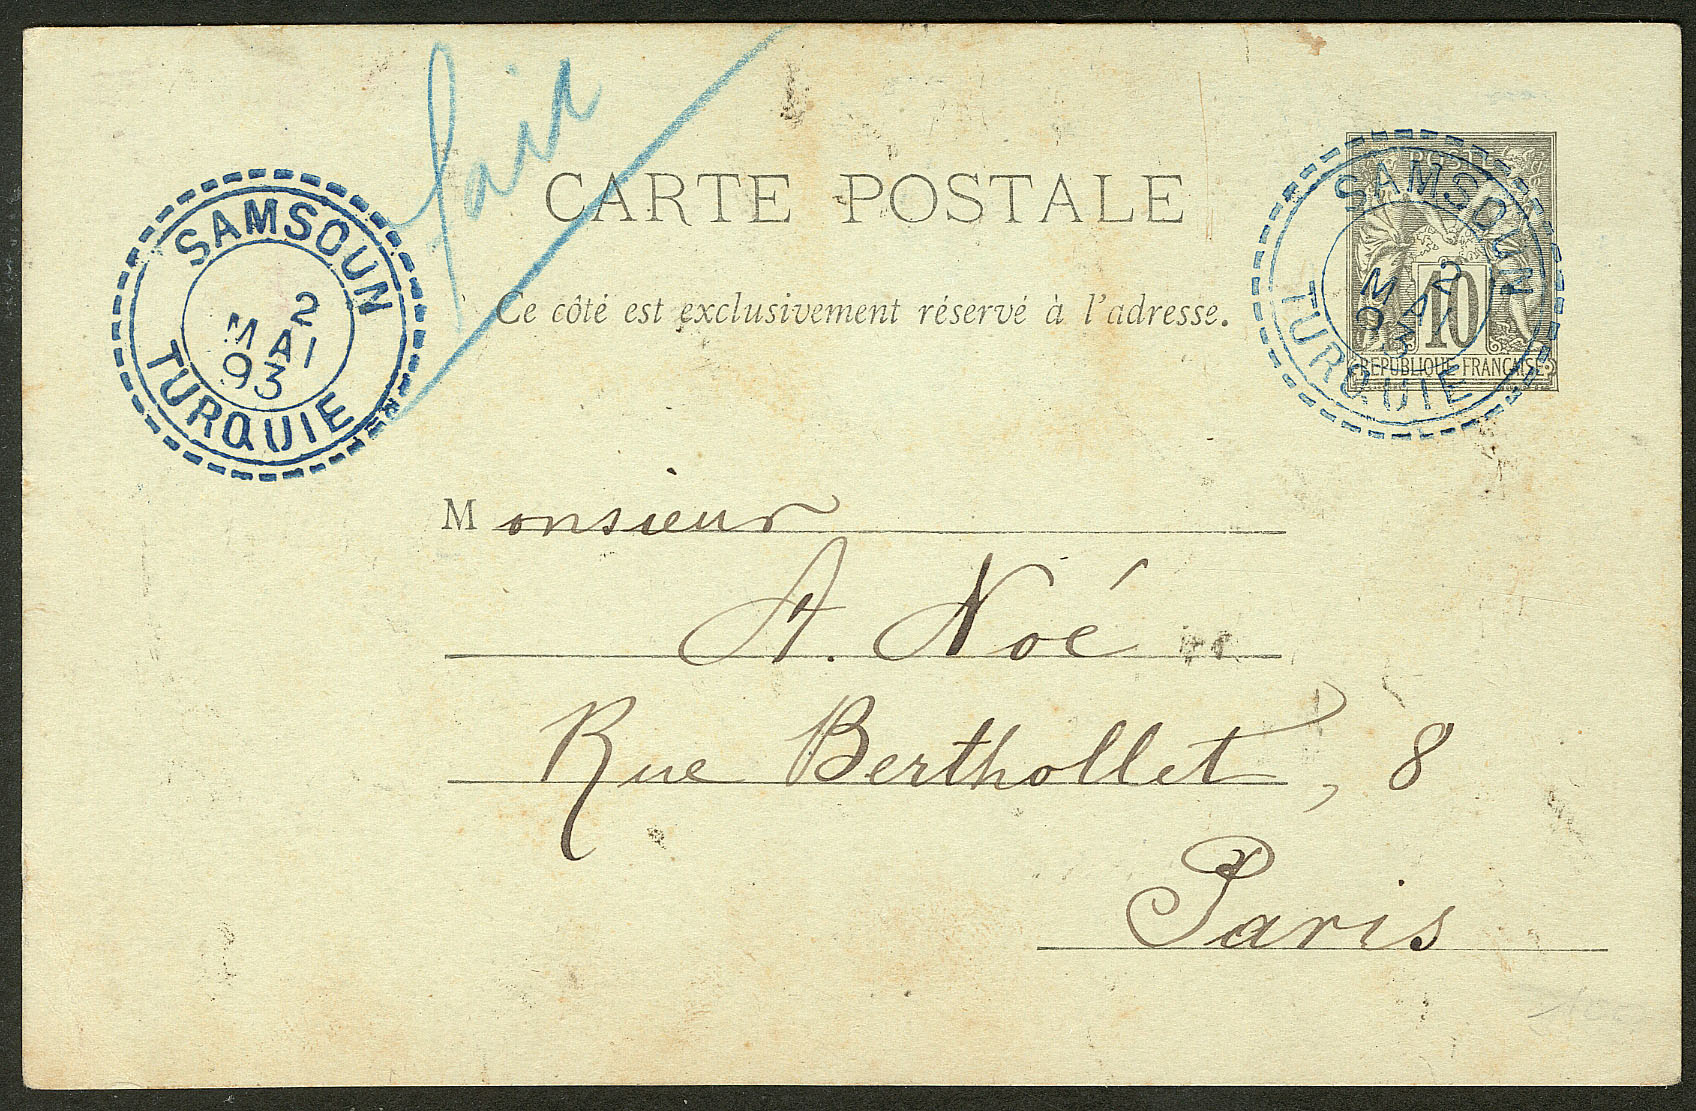 SAMSOUN
2
MAI
93
TURQUIE
CARTE POSTALE
Ce côté est exclusivement réservé à l'adresse.
SAMSOUN
2
MAI
93
TURQUIE
10
REPUBLIQUE FRANCAISE
Monsieur
A. Noé
Rue Berthollet, 8
Paris